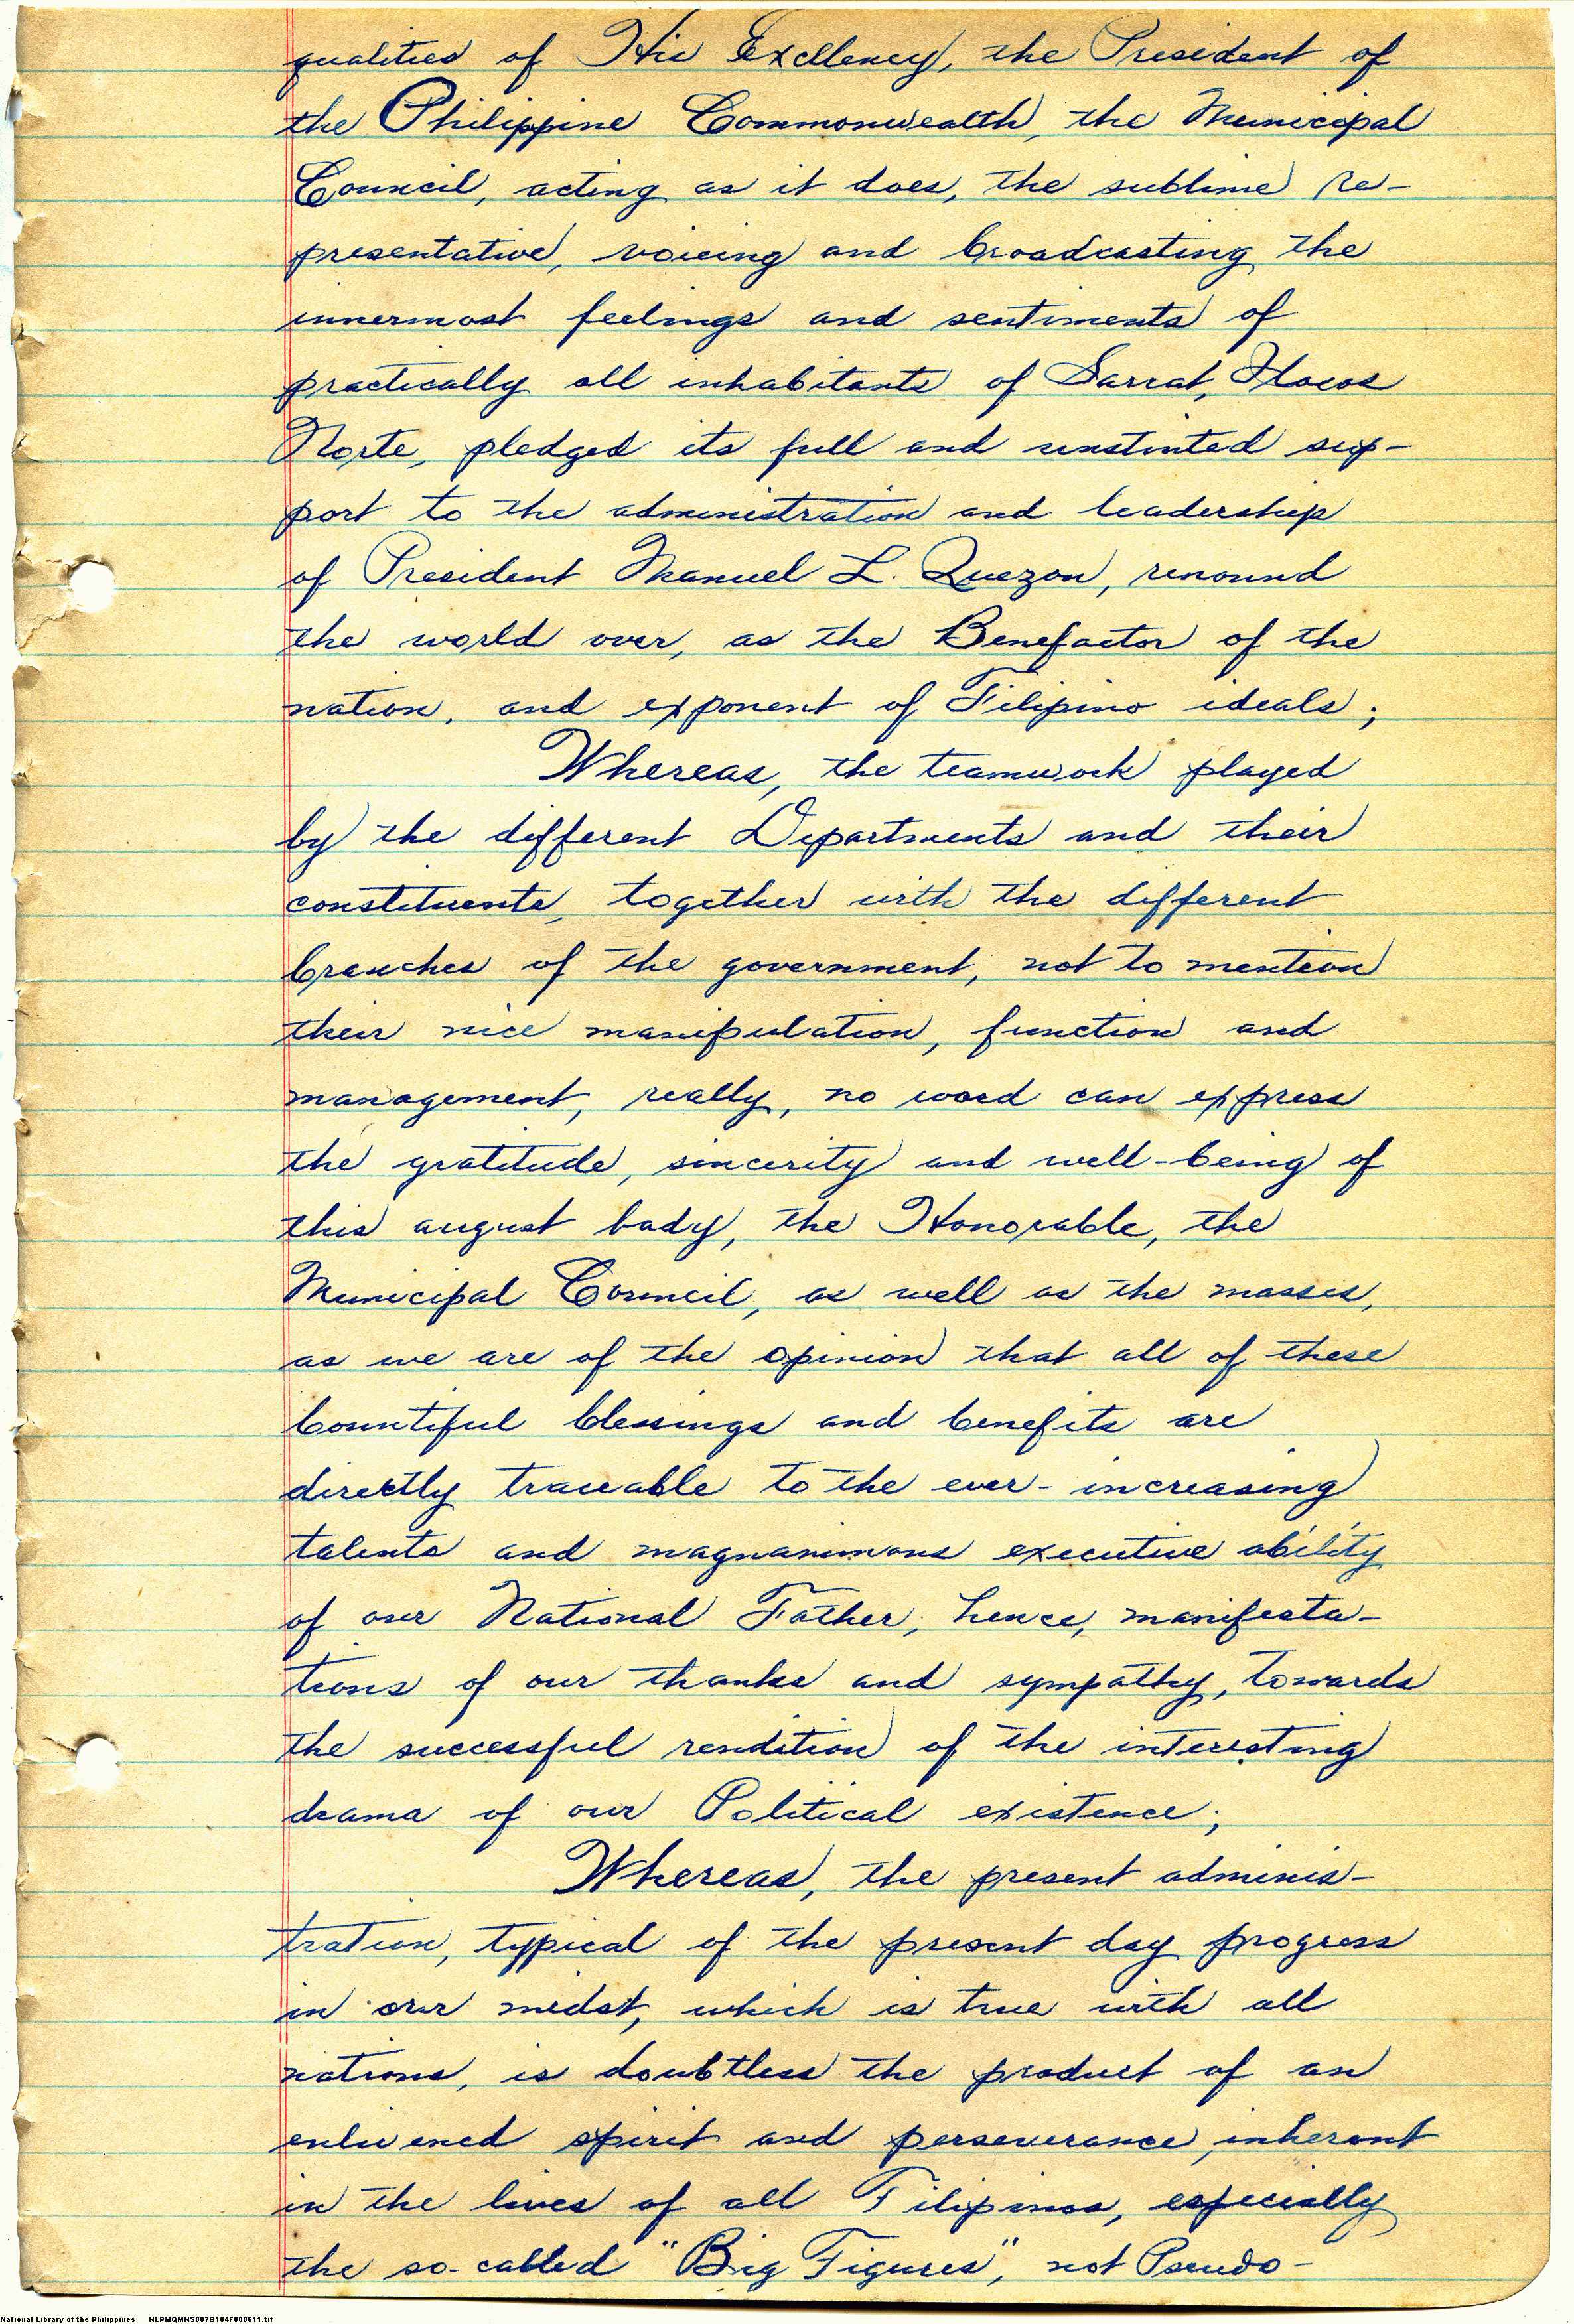 qualities of His Excellency, the President of
the Philippine Commonwealth, the Municipal
Council, acting as it does, the sublime re-
presentative, voicing and broadcasting the
innermost feelings and sentiments of
practically all inhabitants of Sarrat, Ilocos
Norte, pledged its full and unstinted sup-
port to the administration and leadership
of President Manuel L. Quezon, renound
the world over, as the Benefactor of the
nation, and exponent of Filipino ideals;
Whereas, the teamwork played
by the different Departments and their
constituents, together with the different
branches of the government, not to mention
their nice manipulation, function and
management, really, no word can express
the gratitude, sincerity and well-being of
this august body, the Honorable, the
Municipal Council, as well as the masses,
as we are of the opinion that all of these
bountiful blessings and benefits are
directly traceable to the ever-increasing
talents and magnanimous executive ability
of our National Father; hence, manifesta-
tions of our thanks and sympathy, towards
the successful rendition of the interesting
drama of our Political existence;
Whereas, the present adminis-
tration, typical of the present day progress
in our midst, which is true with all
nations, is doubtless the product of an
enlivened spirit and perseverance, inherent
in the lives of all Filipinos, especially
the so-called "Big Figures", not Pseudo-
National Library of the Philippines NLPMQMNS007B104F000611.tif